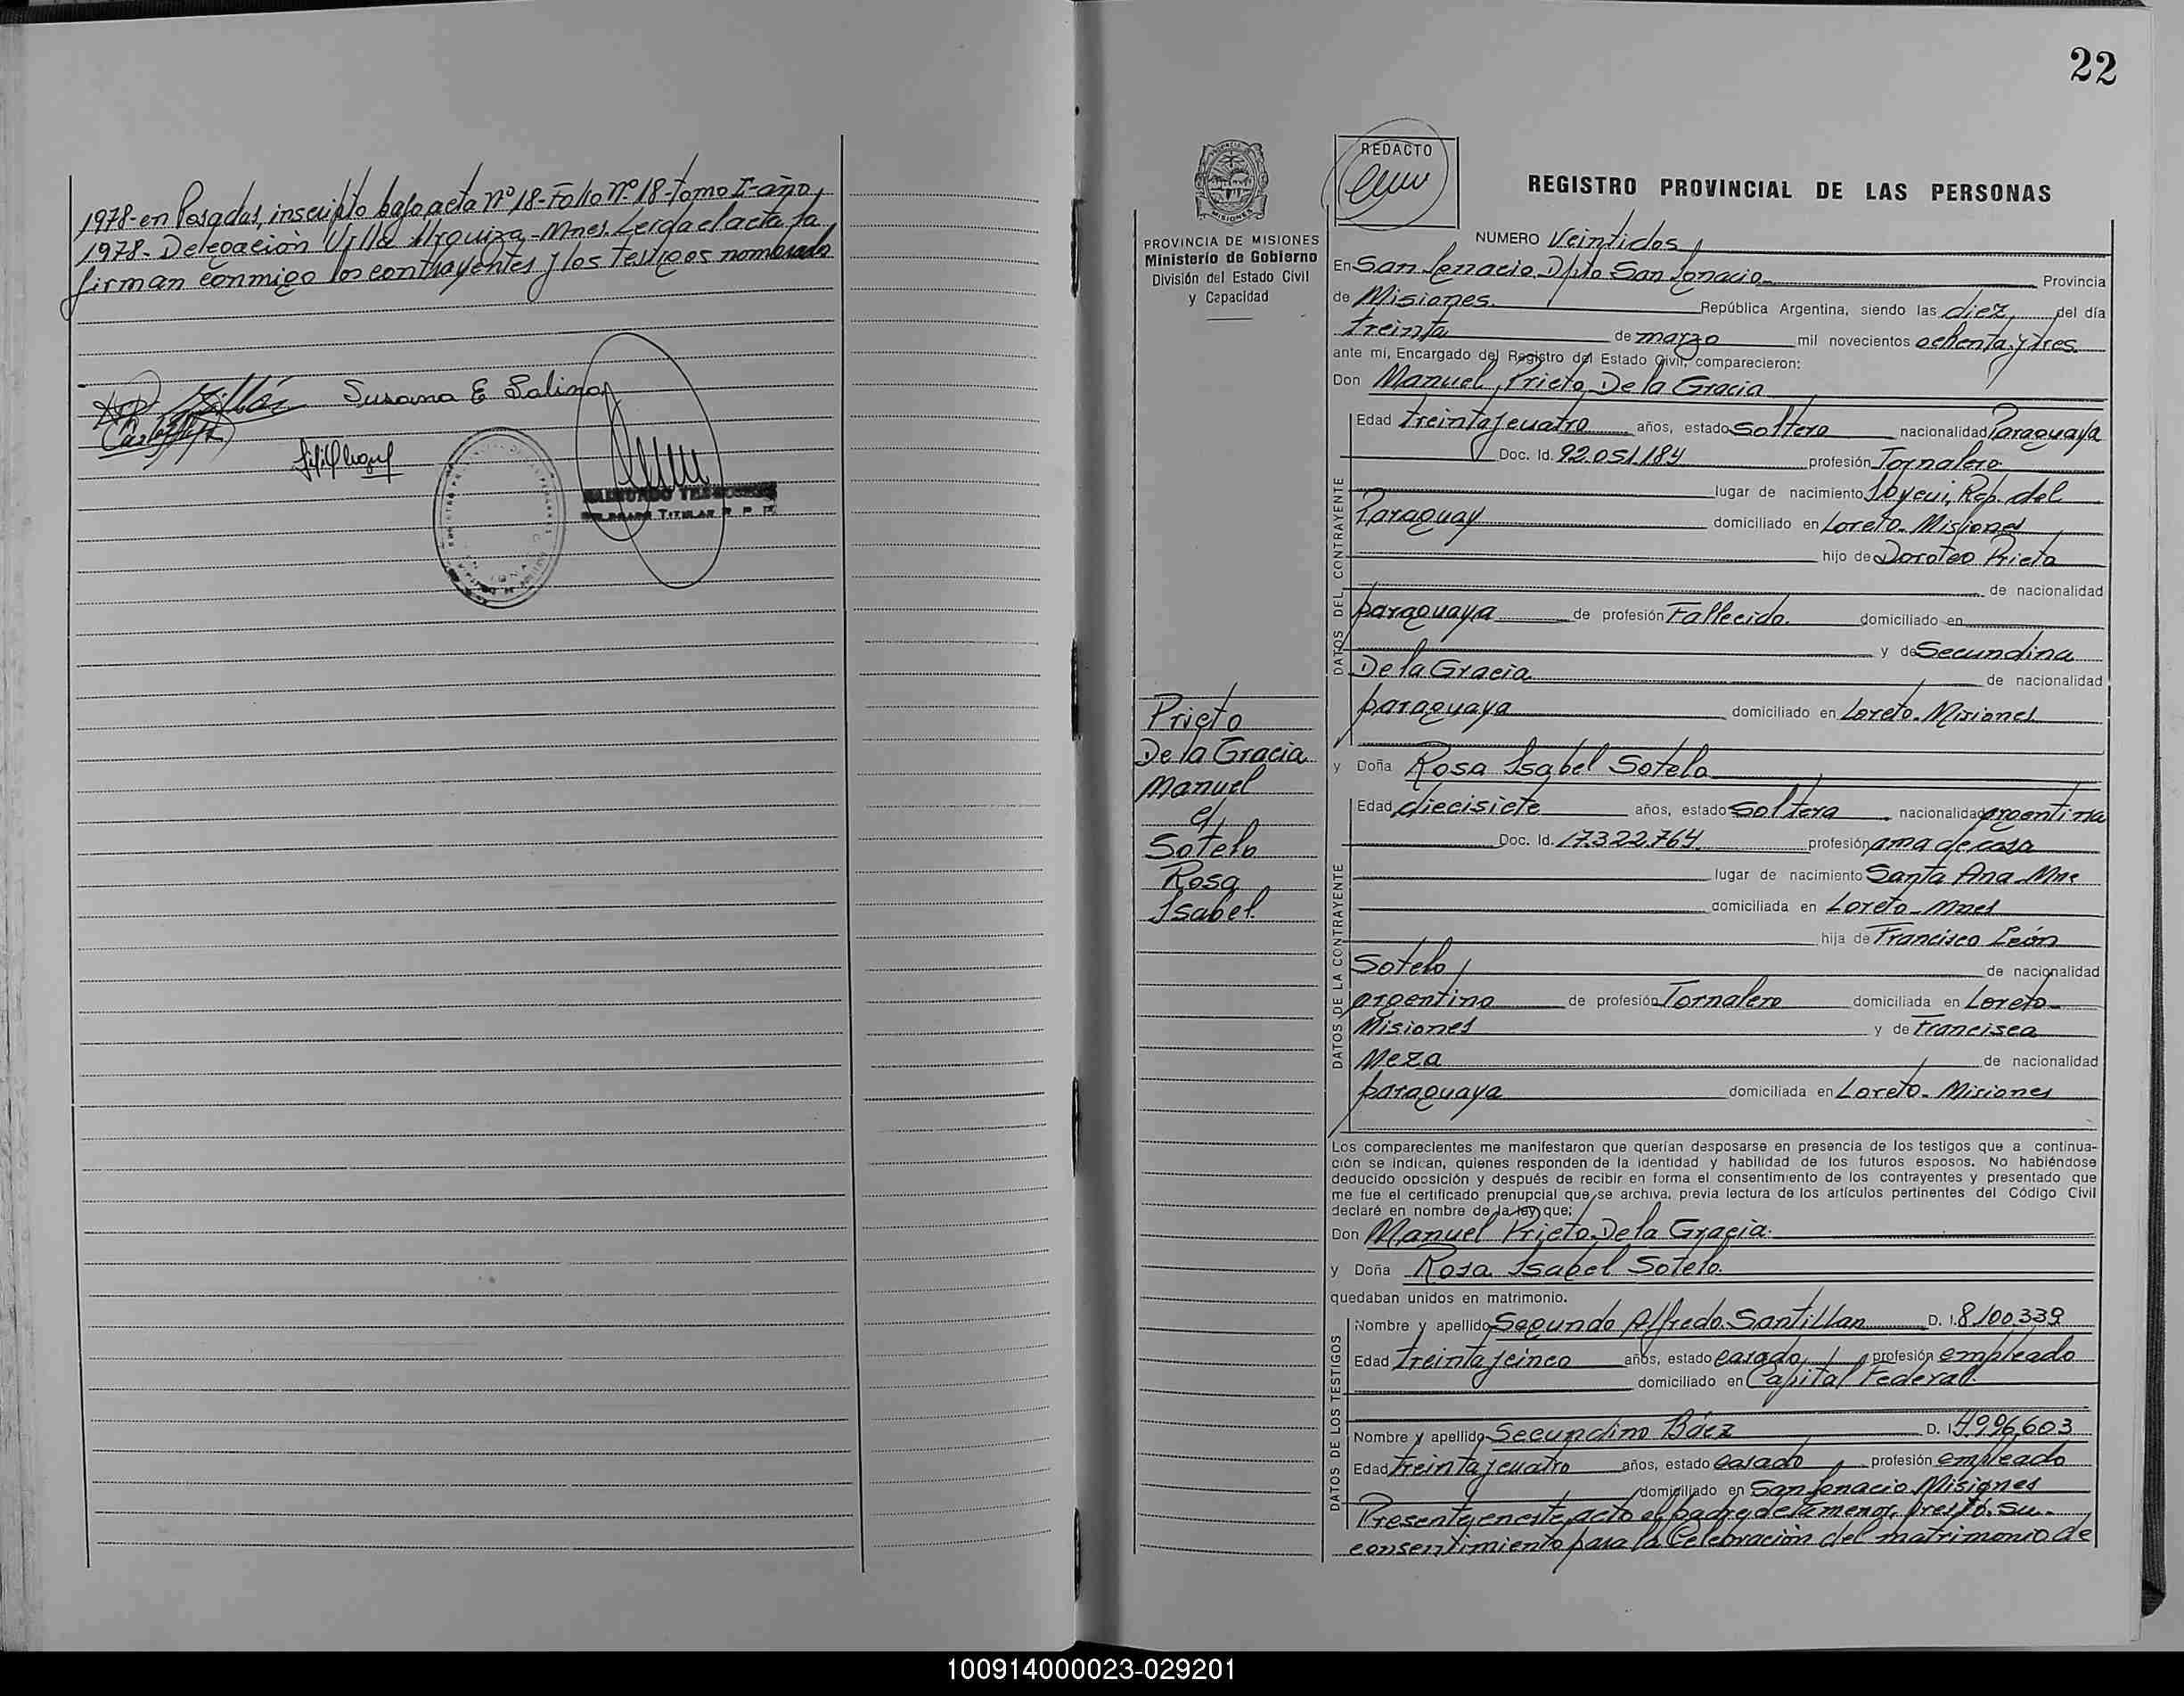 1978-en Posadas, inscripto bajo acta nº 18-Folio nº 18-tomo I-año,
1978- Delegación Villa Urquiza,-Mnes. Leida el acta la
firman conmigo los contrayentes y los testigos nombrados
Susana E Salinas
RAIMUNDO
DELEGADO TITULAR R P P
22
REDACTO
REGISTRO PROVINCIAL DE LAS PERSONAS
PROVINCIA DE MISIONES
Ministerio de Gobierno
División del Estado Civil
y Capacidad
NUMERO Veintidos
En San Ignacio, Dpto San Ignacio Provincia
de Misiones República Argentina, siendo las diez del día
treinta de marzo mil novecientos ochenta y tres
ante mí, Encargado del Registro del Estado Civil, comparecieron:
Don Manuel Prieto De la Gracia
DATOS DEL CONTRAYENTE
Edad treinta y cuatro años, estado soltero nacionalidad Paraguaya
Doc. Id. 92.051.184 profesión Jornalero
lugar de nacimiento Rep. del
Paraguay domiciliado en Loreto. Misiones
hijo de Doroteo Prieto
de nacionalidad
paraguaya de profesión Fallecido. domiciliado en
y de Secundina
De la Gracia de nacionalidad
paraguaya domiciliado en Loreto. Misiones
Prieto
De la Gracia
Manuel
c/
Sotelo
Rosa
Isabel.
y Doña Rosa Isabel Sotelo
DATOS DE LA CONTRAYENTE
Edad diecisiete años, estado soltera nacionalidad argentina
Doc. Id. 17.322.764 profesión ama de casa
lugar de nacimiento Santa Ana Mnes
domiciliada en Loreto-Mnes
hija de Francisco León
Sotelo de nacionalidad
argentina de profesión Jornalero domiciliada en Loreto-
Misiones y de Francisca
Meza de nacionalidad
paraguaya domiciliada en Loreto. Misiones
Los comparecientes me manifestaron que querían desposarse en presencia de los testigos que a continua-
ción se indican, quienes responden de la identidad y habilidad de los futuros esposos. No habiéndose
deducido oposición y después de recibir en forma el consentimiento de los contrayentes y presentado que
me fue el certificado prenupcial que se archiva, previa lectura de los artículos pertinentes del Código Civil
declaré en nombre de la ley que:
Don Manuel Prieto De la Gracia.
y Doña Rosa Isabel Sotelo
quedaban unidos en matrimonio.
DATOS DE LOS TESTIGOS
Nombre y apellido Segundo Alfredo Santillan D. I. 8.100.339
Edad treinta y cinco años, estado casado profesión empleado
domiciliado en Capital Federal.
Nombre y apellido Secundino Báez D. I. 4.996.603
Edad treinta y cuatro años, estado casado profesión empleado
domiciliado en San Ignacio Misiones
Presente en este acto el padre de la menor, prestó su
consentimiento para la Celebración del matrimonio de
100914000023-029201